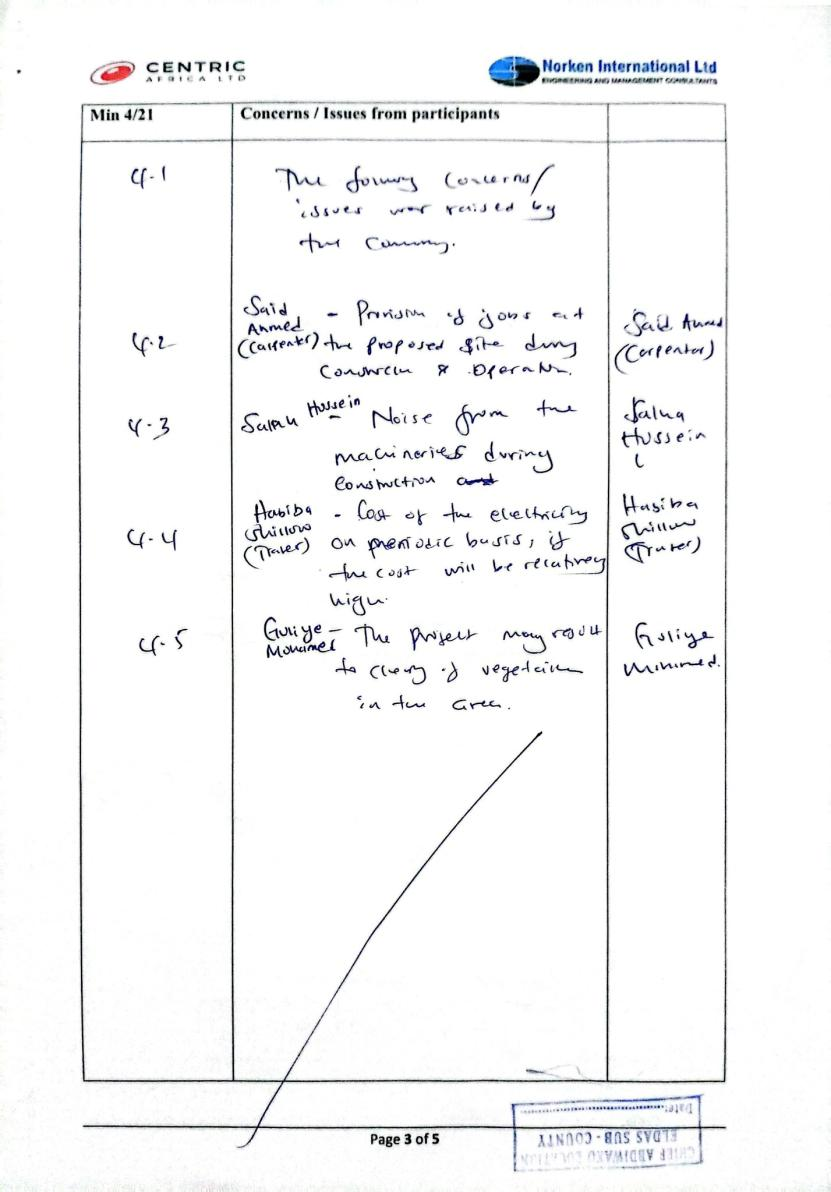 CENTRIC
AFRICA LTD
Norken International Ltd
ENGINEERING AND MANAGEMENT CONSULTANTS
Min 4/21
Concerns / Issues from participants
4.1
The Concerns/
issues was raised by
the
4.2
Said Ahmed (Carpenter)
- Provision of jobs at
the proposed site during
Construction & Operation.
Said Ahmed
(Carpenter)
4.3
Hussein
Noise from the
machineries during
construction and
Salha
Hussein
(
4.4
Habiba Shillow (Trader)
- Cost of the electricity
on periodic basis, if
the cost will be relatively
high.
Habiba
Shillow
(Trader)
4.5
Guliye Mohamed
- The project may result
to clearing of vegetation
in the area.
Guliye
Mohamed.
Page 3 of 5
Date:
ELDAS SUB-COUNTY
CHIEF ABDIWAKO LOCATION